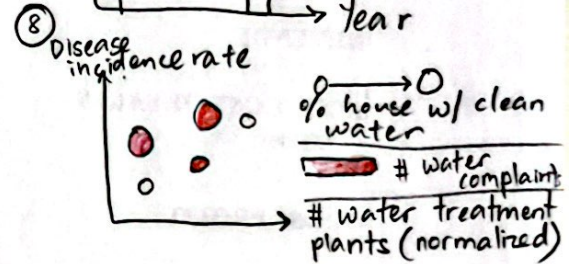 Year
8
Disease
incidence rate
% house w/ clean
water
# water
complaint
# water treatment
plants (normalized)